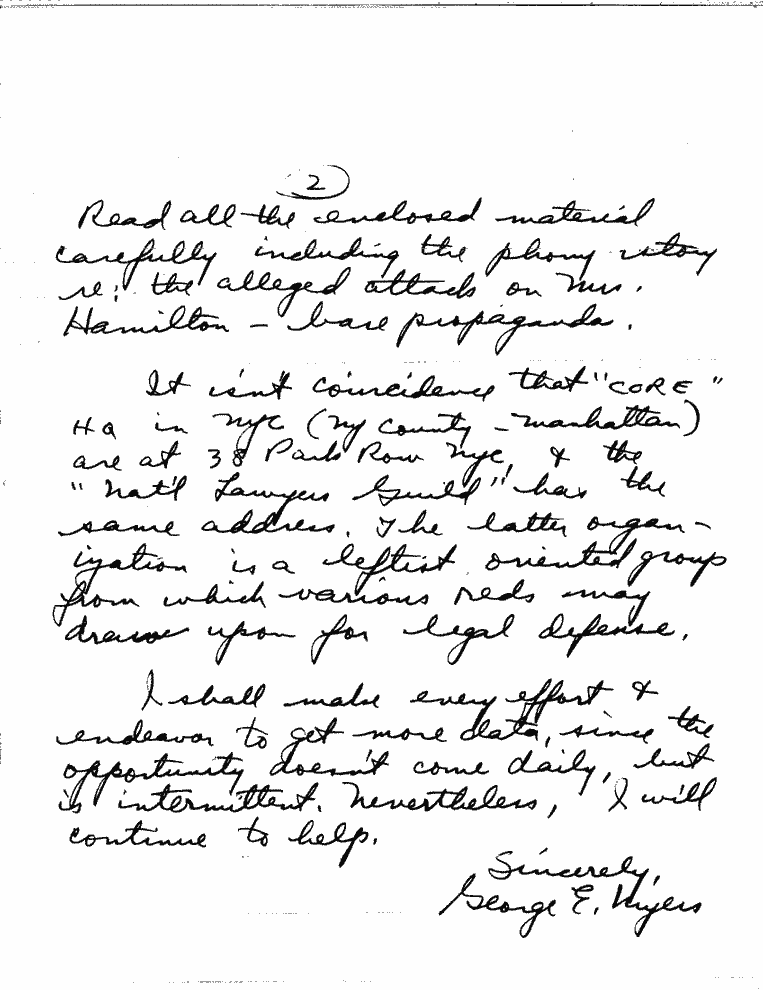 2
Read all the enclosed material
carefully including the phony story
re: the alleged attack on Mrs.
Hamilton - base propaganda.
It isn't coincidence that "CORE"
HQ in NYC (NY County - Manhattan)
are at 38 Park Row NYC, & the
"Nat'l Lawyers Guild" has the
same address. The latter organ-
ization is a leftist oriented group
from which various reds may
draw upon for legal defense.
I shall make every effort &
endeavor to get more data, since the
opportunity doesn't come daily, but
is intermittent. Nevertheless, I will
continue to help.
Sincerely,
George E. Myers